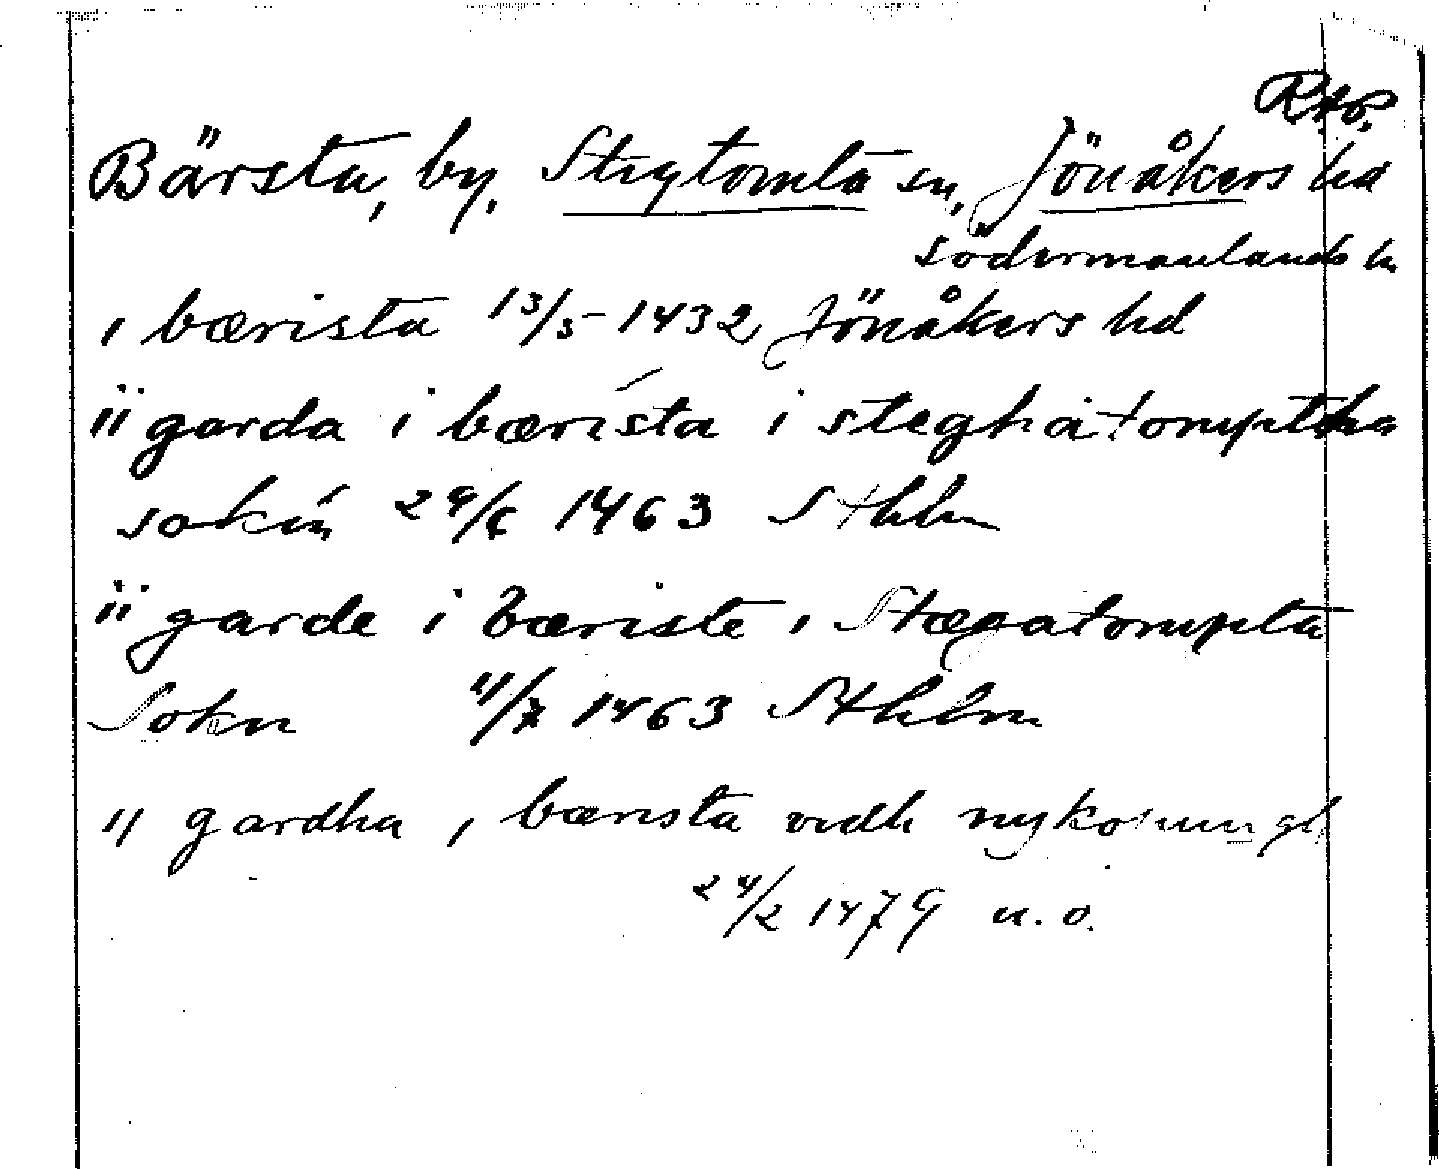 RAP.
Bärsta, by. Stigtomta sn, Jönåkers hd
Södermanlands l.
i bærista 13/5 1432 Jönåkers hd
ii garda i bærista i steghatomptha
sokin 29/6 1463 Sthlm
ii garde i Bæriste i Stægatompta
Sokn 11/7 1463 Sthlm
ij gardha i bærista vidh
24/2 1479 u.o.